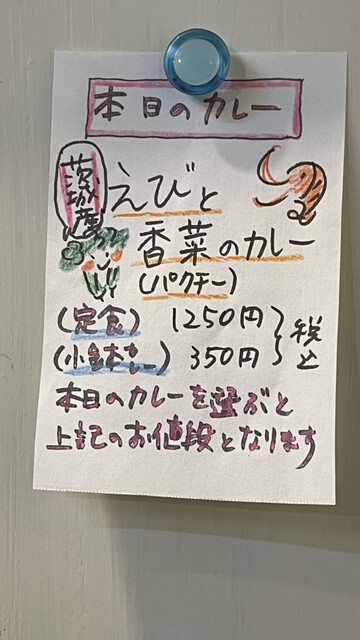 本日のカレー
茨城産
えびと
香菜のカレー
(パクチー)
(定食) 1250円
(小鉢カレー) 350円
税込
本日のカレーを選ぶと
上記のお値段となります